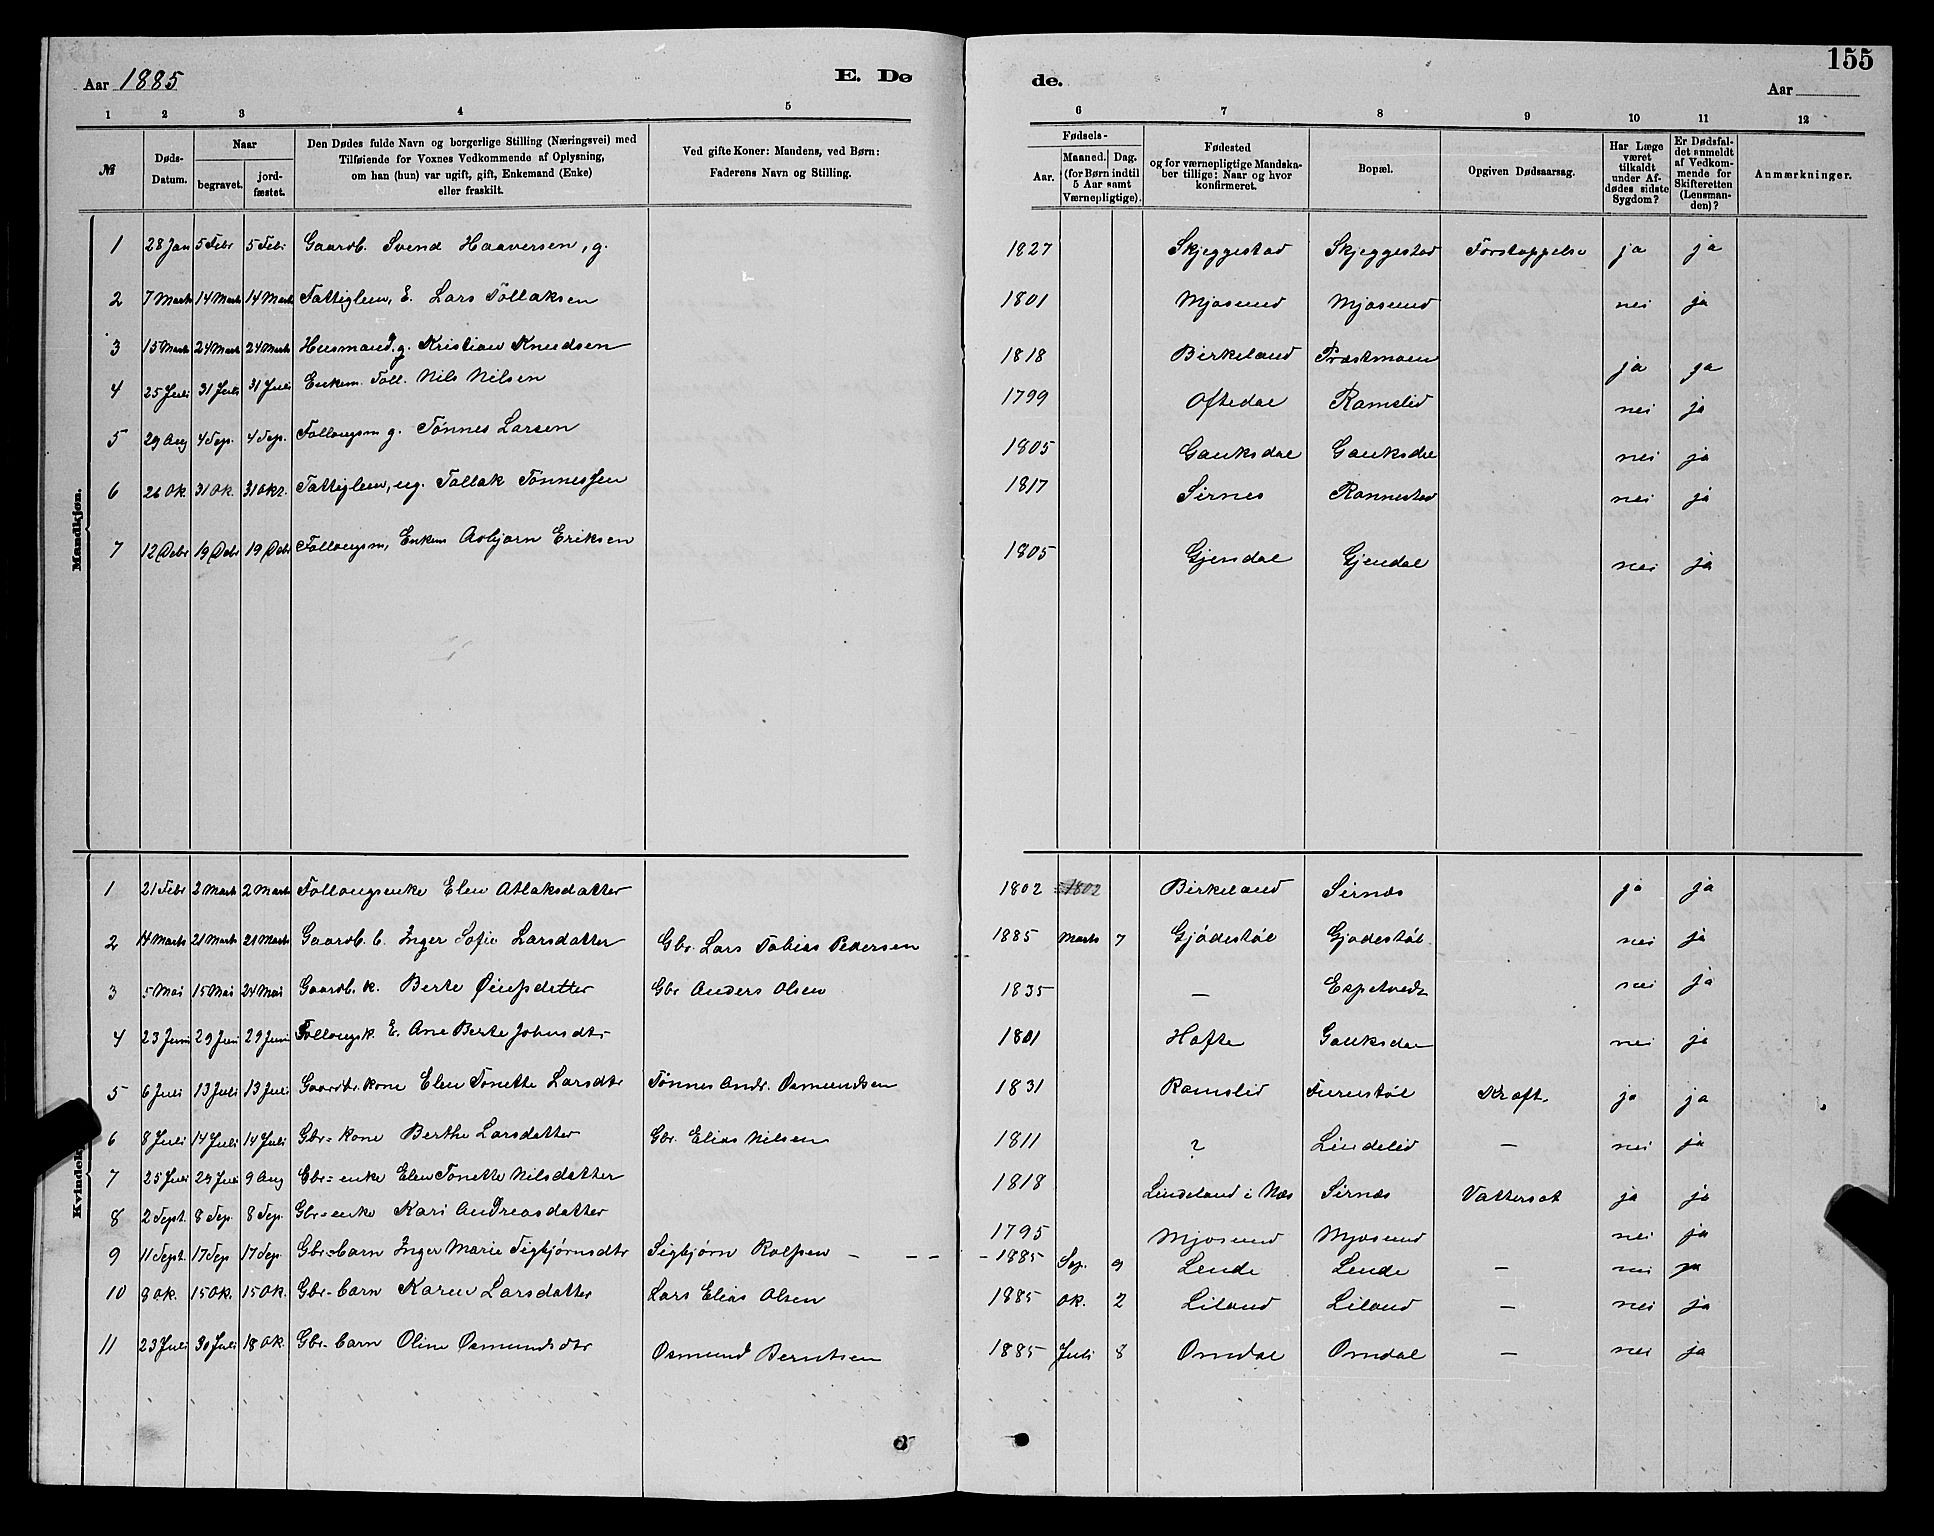 155
Aar 1885 E. Dø de. Aar
1 2 3 4 5 6 7 8 9 10 11 12
№ Døds-Datum. Naar begravet. jordfæstet. Den Dødes fulde Navn og borgerlige Stilling (Næringsvei) med Tilføiende for Voxnes Vedkommende af Oplysning, om han (hun) var ugift, gift, Enkemand (Enke) eller fraskilt. Ved gifte Koner: Mandens, ved Børn: Faderens Navn og Stilling. Fødsels- Aar. Maaned. Dag. (for Børn indtil 5 Aar samt Værnepligtige). Fødested og for værnepligtige Mandskaber tillige: Naar og hvor konfirmeret. Bopæl. Opgiven Dødsaarsag. Har Læge været tilkaldt under Afdødes sidste Sygdom? Er Dødsfaldet anmeldt af Vedkommende for Skifteretten (Lensmanden)? Anmærkninger.
Mandkjøn.
1 28 Jan 5 Febr 5 Febr Gaardb. Svend Haaversen, g. 1827 Skjeggestad Skjeggestad Forstoppelse ja ja
2 7 Marts 14 Marts 14 Marts Fattiglem, E. Lars Tollaksen 1801 Mjosund Mjosund nei ja
3 15 Marts 24 Marts 24 Marts Husmand, g. Kristian Knudsen 1818 Birkeland Præstmoen ja ja
4 25 Juli 31 Juli 31 Juli Enkem. Foll. Nils Nilsen 1799 Oftedal Ramslid nei ja
5 29 Aug 4 Sep. 4 Sep. Follougsm g. Tönnes Larsen 1805 Gauksdal Gauksdal nei ja
6 26 Ok. 31 Ok. 31 Okt. Fattiglem, ug. Tollak Tönnessen 1817 Sirnes Rannestad nei ja
7 12 Debr 19 Debr 19 Debr Follougsm, Enkem Asbjørn Eriksen 1805 Gjendal Gjendal nei ja
Kvindek
1 21 Febr 2 Marts 2 Marts Follougsenke Elen Atlaksdatter 1802 1802 Birkeland Sirnæs ja ja
2 14 Marts 21 Marts 21 Marts Gaardb. b. Inger Sofie Larsdatter Gbr. Lars Tobias Pedersen 1885 Marts 7 Gjödestöl Gjödestöl nei ja
3 5 Mai 15 Mai 24 Mai Gaardb. k. Berte Øiufsdatter Gbr Anders Olsen 1835 — Espetvedt nei ja
4 23 Juni 29 Juni 29 Juni Follougsk. E. Ane Berte Johnsdtr 1801 Hafte Gauksdal nei ja
5 6 Juli 13 Juli 13 Juli Gaardbr. kone Elen Tonette Larsdtr Tönnes Andr. Osmundsen 1831 Ramslid Furustöl Kræft. ja ja
6 8 Juli 14 Juli 14 Juli Gbr= kone Berthe Larsdatter Gbr. Elias Nilsen 1811 ? Lindelid — nei ja
7 25 Juli 29 Juli 9 Aug Gbr= enke Elen Tonette Nilsdatter 1818 Lindeland i Næs Sirnæs Vattersot ja ja
8 2 Sept. 8 Sep. 8 Sep. Gbr=enke Kari Andreasdatter 1795 Mjosund Mjosund nei ja
9 11 Sept. 17 Sep 17 Sep. Gbr=barn Inger Marie Sigbjørnsdtr Sigbjørn Rolfsen — — — 1885 Sep. 9 Lende Lende — nei ja
10 8 Ok. 15 Ok. 15 Ok. Gbr=barn Karen Larsdatter Lars Elias Olsen 1885 Ok. 2 Liland Liland — nei ja
11 23 Juli 30 Juli 18 Ok. Gbr-barn Oline Osmundsdtr Osmund Berntsen 1885 Juli 8 Omdal Omdal — nei ja